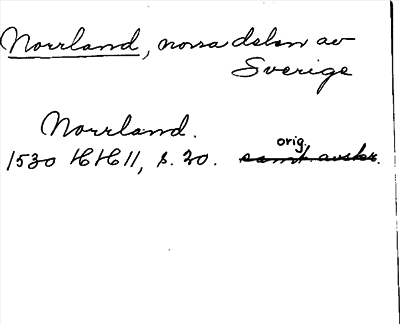 Norrland, norra delen av
Sverige
Norrland.
orig.
1530 HH 11, s. 20. samt. avskr.